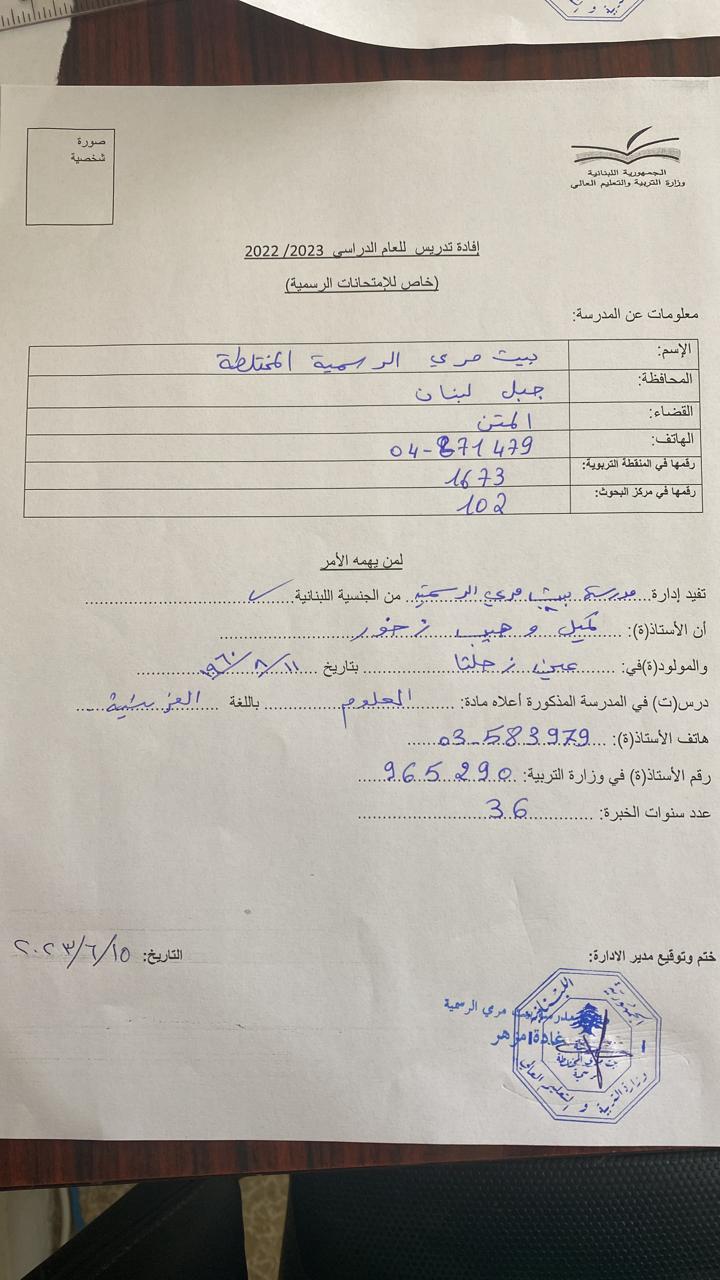 صورة
شخصية
الجمهورية اللبنانية
وزارة التربية والتعليم العالي
إفادة تدريس للعام الدراسي 2023/ 2022
(خاص للإمتحانات الرسمية)
معلومات عن المدرسة:
الإسم: بيت مري الرسمية المختلطة
المحافظة: جبل لبنان
القضاء: المتن
الهاتف: 04-871479
رقمها في المنقطة التربوية: 1673
رقمها في مركز البحوث: 102
لمن يهمه الأمر
تفيد إدارة مدرسة بيت مري الرسمية من الجنسية اللبنانية ✓
أن الأستاذ(ة): كميل وهيب زخور
والمولود(ة)في: عين زحلتا بتاريخ ١١/٨/١٩٦٠
درس(ت) في المدرسة المذكورة أعلاه مادة: العلوم باللغة الفرنسية
هاتف الأستاذ(ة): 03-583979
رقم الأستاذ(ة) في وزارة التربية: 965290
عدد سنوات الخبرة: 36
ختم وتوقيع مدير الادارة: التاريخ: ١٥/٦/٢٠٢٣
مدرسة بيت مري الرسمية
غادة مزهر
الجمهورية اللبنانية
وزارة التربية و التعليم العالي